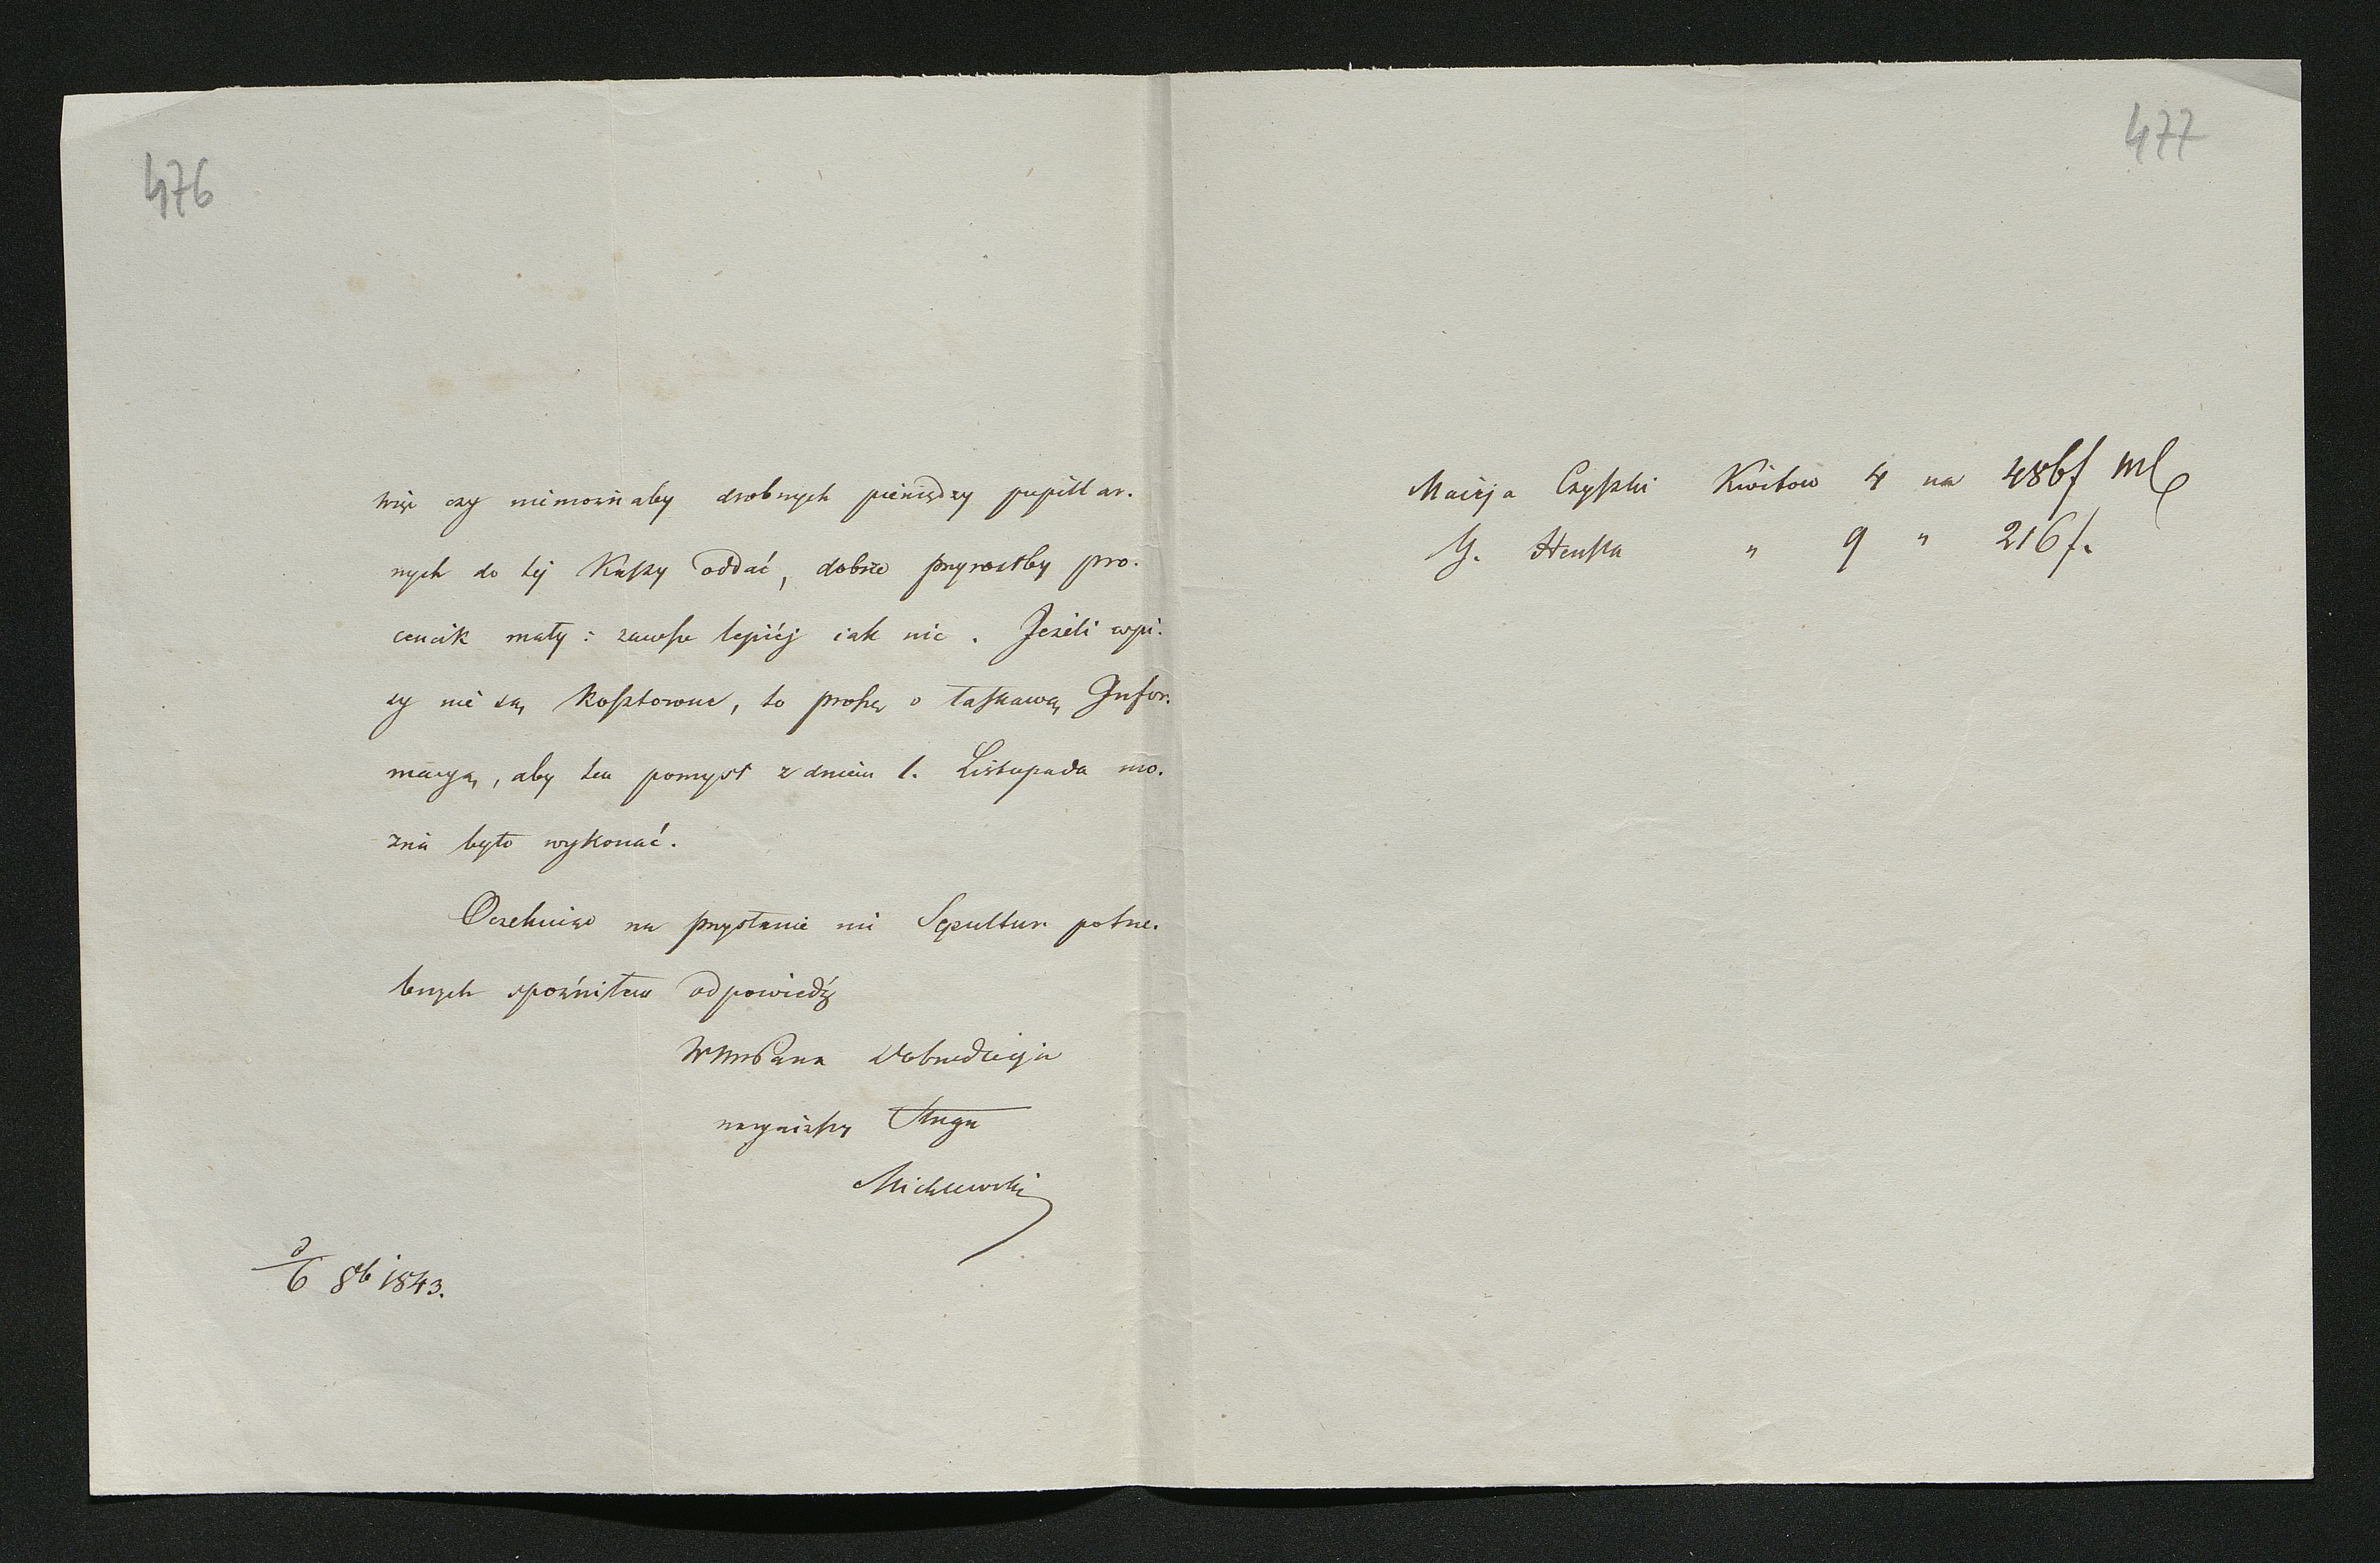 476
więc czy niemożnaby drobnych pieniędzy pupillar.
nych do tej Kassy oddać, dobrze przyrosłby pro.
cencik mały: zawsze lepiéj iak nic. Jeżeli wpi.
sy nie są kosztowne, to proszę o łaskawą Infor.
macyą, aby ten pomysł z dniem 1. Listopada mo.
żna było wykonać.
Oczekuiąc na przysłanie mi Sepultur potrze.
bnych spoźniłem odpowiedź
WMPana Dobrodzieja
nayniższy Sługa
Michlewski
d/6 8b 1843.
477
Macieja Czyszki Kwitow 4 na 486f
Henszka " 9 " 216f.